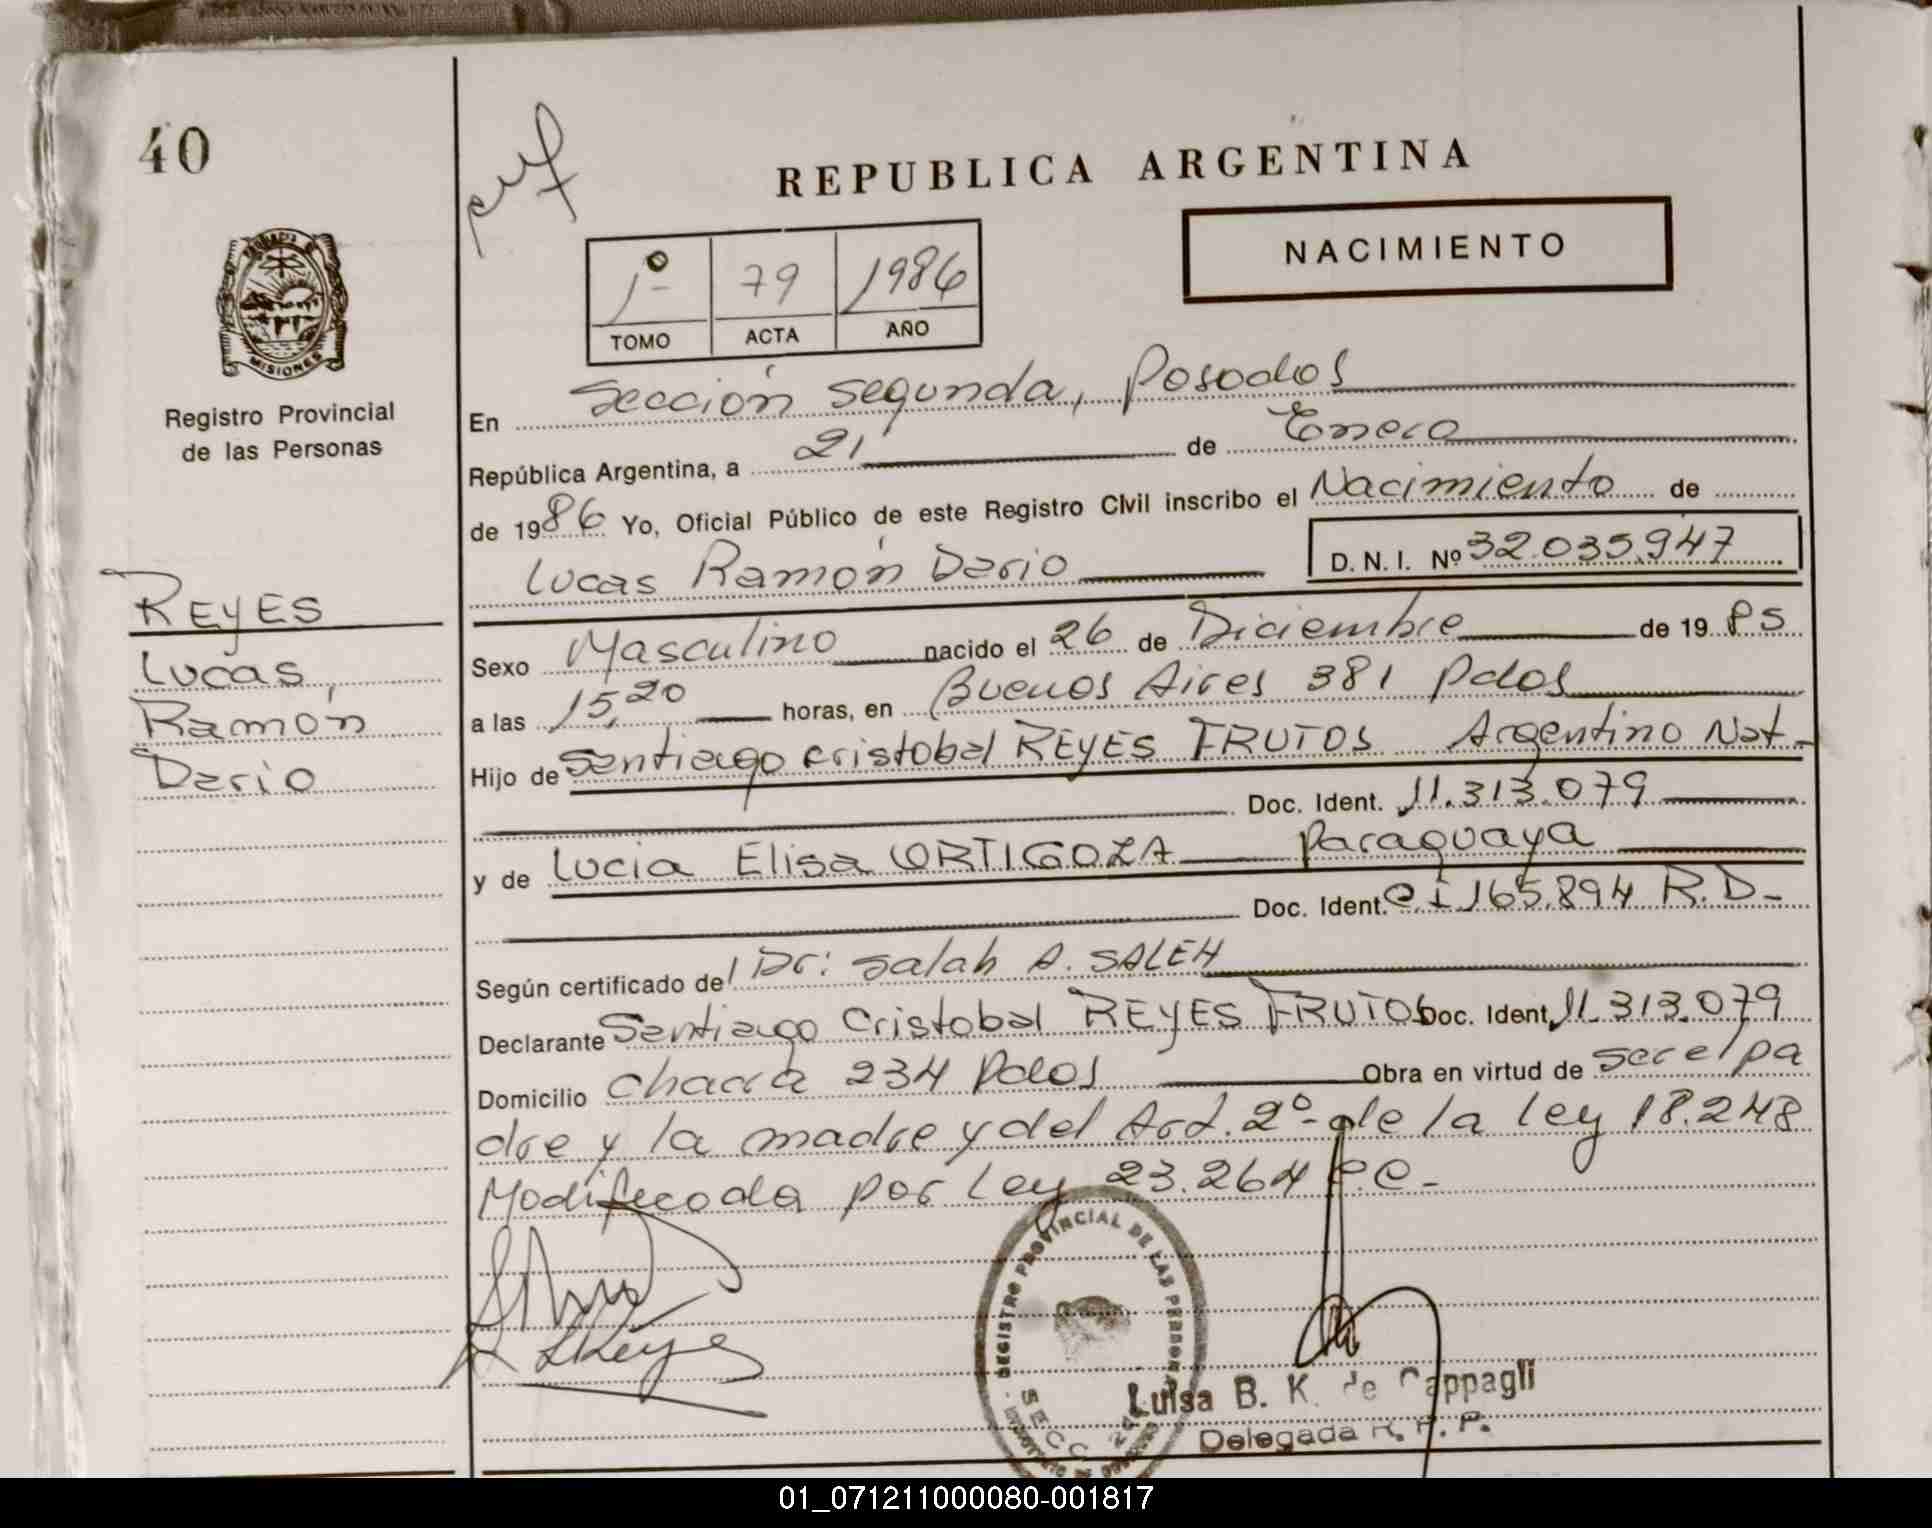 40
REPUBLICA ARGENTINA
NACIMIENTO
1º 79 1986
TOMO ACTA AÑO
PROVINCIA DE MISIONES
Registro Provincial
de las Personas
REYES
Lucas,
Ramón
Dario
En Sección segunda, Posadas
República Argentina, a 21 de Enero
de 1986 Yo, Oficial Público de este Registro Civil inscribo el Nacimiento de
Lucas Ramón Dario D. N. I. Nº 32.035.947
Sexo Masculino nacido el 26 de Diciembre de 1985
a las 15,20 horas, en Buenos Aires 381 Pdas
Hijo de Santiago Cristobal REYES FRUTOS Argentino Nat-
Doc. Ident. 11.313.079
y de Lucia Elisa ORTIGOZA Paraguaya
Doc. Ident. C.I 165.894 R.D-
Según certificado del Dr: Salah A. SALEH
Declarante Santiago Cristobal REYES FRUTOS Doc. Ident. 11.313.079
Domicilio Chacra 234 Pdas Obra en virtud de ser el pa
dre y la madre y del Art. 2º- de la ley 18.248
Modificada por Ley 23.264
REGISTRO PROVINCIAL DE LAS PERSONAS
SECC
Luisa B. K. de Cappagli
Delegada R. P. P.
01_071211000080-001817